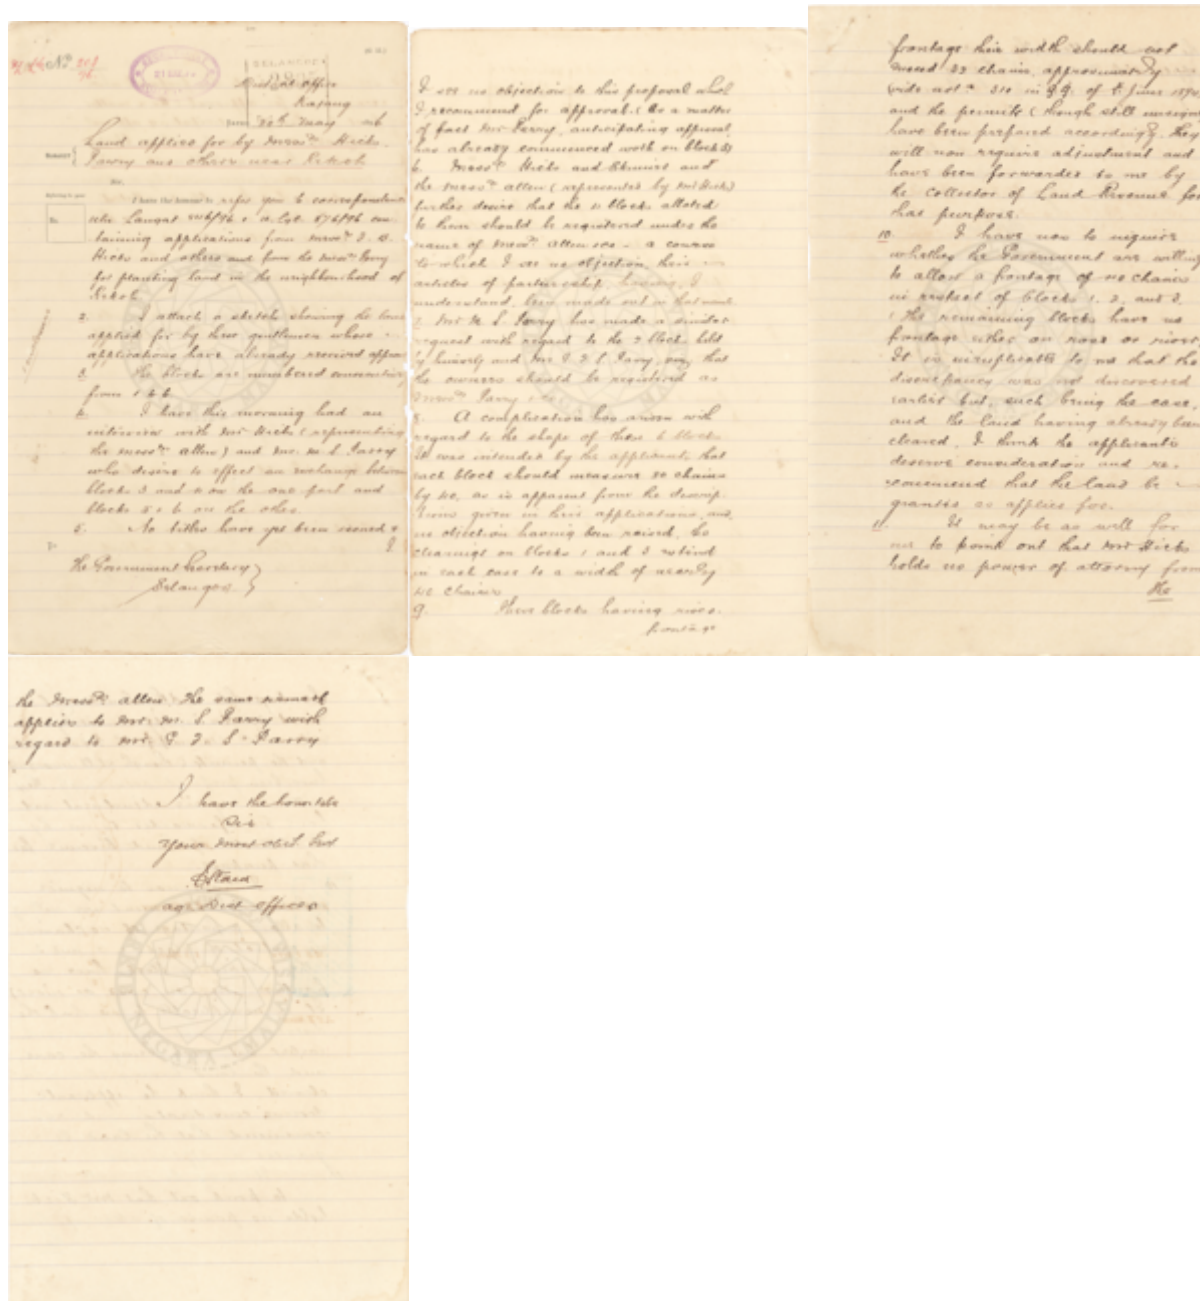 No. 208/96
SELANGOR
District Office
Kajang
20th May 96
Land applied for by Messrs Hicks,
Parry and others near Reko
Sir,
I have the honour to refer you to correspondence
containing applications from Messrs
Hicks and others and from the Messrs Parry
for planting land in the neighbourhood of
2. I attach a sketch showing the land
applied for by these gentlemen whose
applications have already received approval
3. The blocks are numbered consecutively
from 1 to 6.
4. I have this morning had an
interview with Mr Hicks (representing
the Messrs Allen) and Mr. M. S. Parry
who desire to effect an exchange between
blocks 3 and 4 on the one part and
blocks 5 & 6 on the other.
5. No titles have yet been issued &
I
The Government Secretary
Selangor
I see no objection to this proposal which
I recommend for approval. (As a matter
of fact Mr Parry, anticipating approval,
has already commenced work on block
6. Messrs Hicks and and
the Messrs Allen (represented by Mr Hicks)
further desire that the 4 blocks allotted
to them should be registered under the
name of Messrs Allen & Co - a course
to which I see no objection, their
articles of partnership having, I
understand, been made out in that name
7. Mr M. S. Parry has made a similar
request with regard to the 2 blocks held
by himself and Mr Parry, viz that
the owners should be registered as
Messrs Parry & Co
8. A complication has arisen with
regard to the shape of these 6 blocks
It was intended by the applicants that
each block should measure 80 chains
by 40, as is apparent from the descrip
tions given in their applications, and,
no objection having been raised, the
clearings on blocks 1 and 3 extend
in each case to a width of nearly
40 chains
9. These blocks having river
frontage
frontage their width should not
exceed chains approximately
vide not n 310 in G.G. of 5 June 189
and the permits (though still unsigned)
have been prepared accordingly. They
will now require adjustment and
have been forwarded to me by
the Collector of Land Revenue for
that purpose.
10. I have now to inquire
whether the Government are willing
to allow a frontage of 40 chains
in respect of blocks 1, 2, and 3.
(The remaining blocks have no
frontage either on road or river)
It is inexplicable to me that the
discrepancy was not discovered
earlier but, such being the case,
and the land having already been
cleared, I think the applicants
deserve consideration and re-
commend that the land be
granted as applied for.
11. It may be as well for
me to point out that Mr Hicks
holds no power of attorney from
the
the Messrs Allen the same remark
applies to Mr. M. S. Parry with
regard to Mr. Parry
I have the honour to be
Sir
Your most obdt Servt
ag Dist Officer